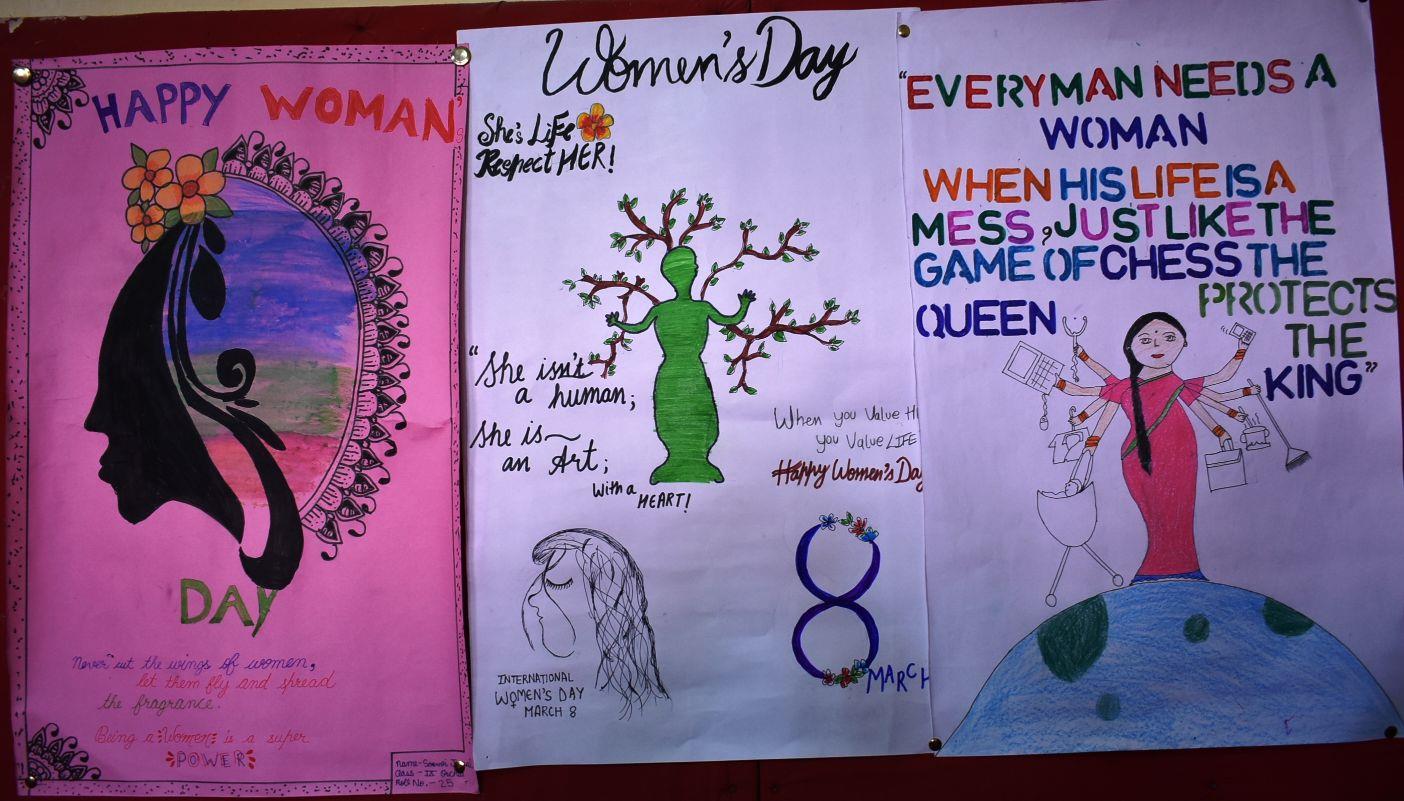 HAPPY WOMAN'S
DAY
Never cut the wings of women,
let them fly and spread
the fragrance.
Being a Women is a super
POWER
Name-
Class - IX
Roll No. - 25
Women's Day
She's Life
Respect HER!
"She isn't
a human;
She is~
an Art;
With a
HEART!
When you Value
you Value LIFE
Happy Women's Day
INTERNATIONAL
WOMEN'S DAY
MARCH 8
8
MARCH
"EVERY MAN NEEDS A
WOMAN
WHEN HIS LIFE IS A
MESS, JUST LIKE THE
GAME OF CHESS THE
QUEEN PROTECTS
THE
KING"